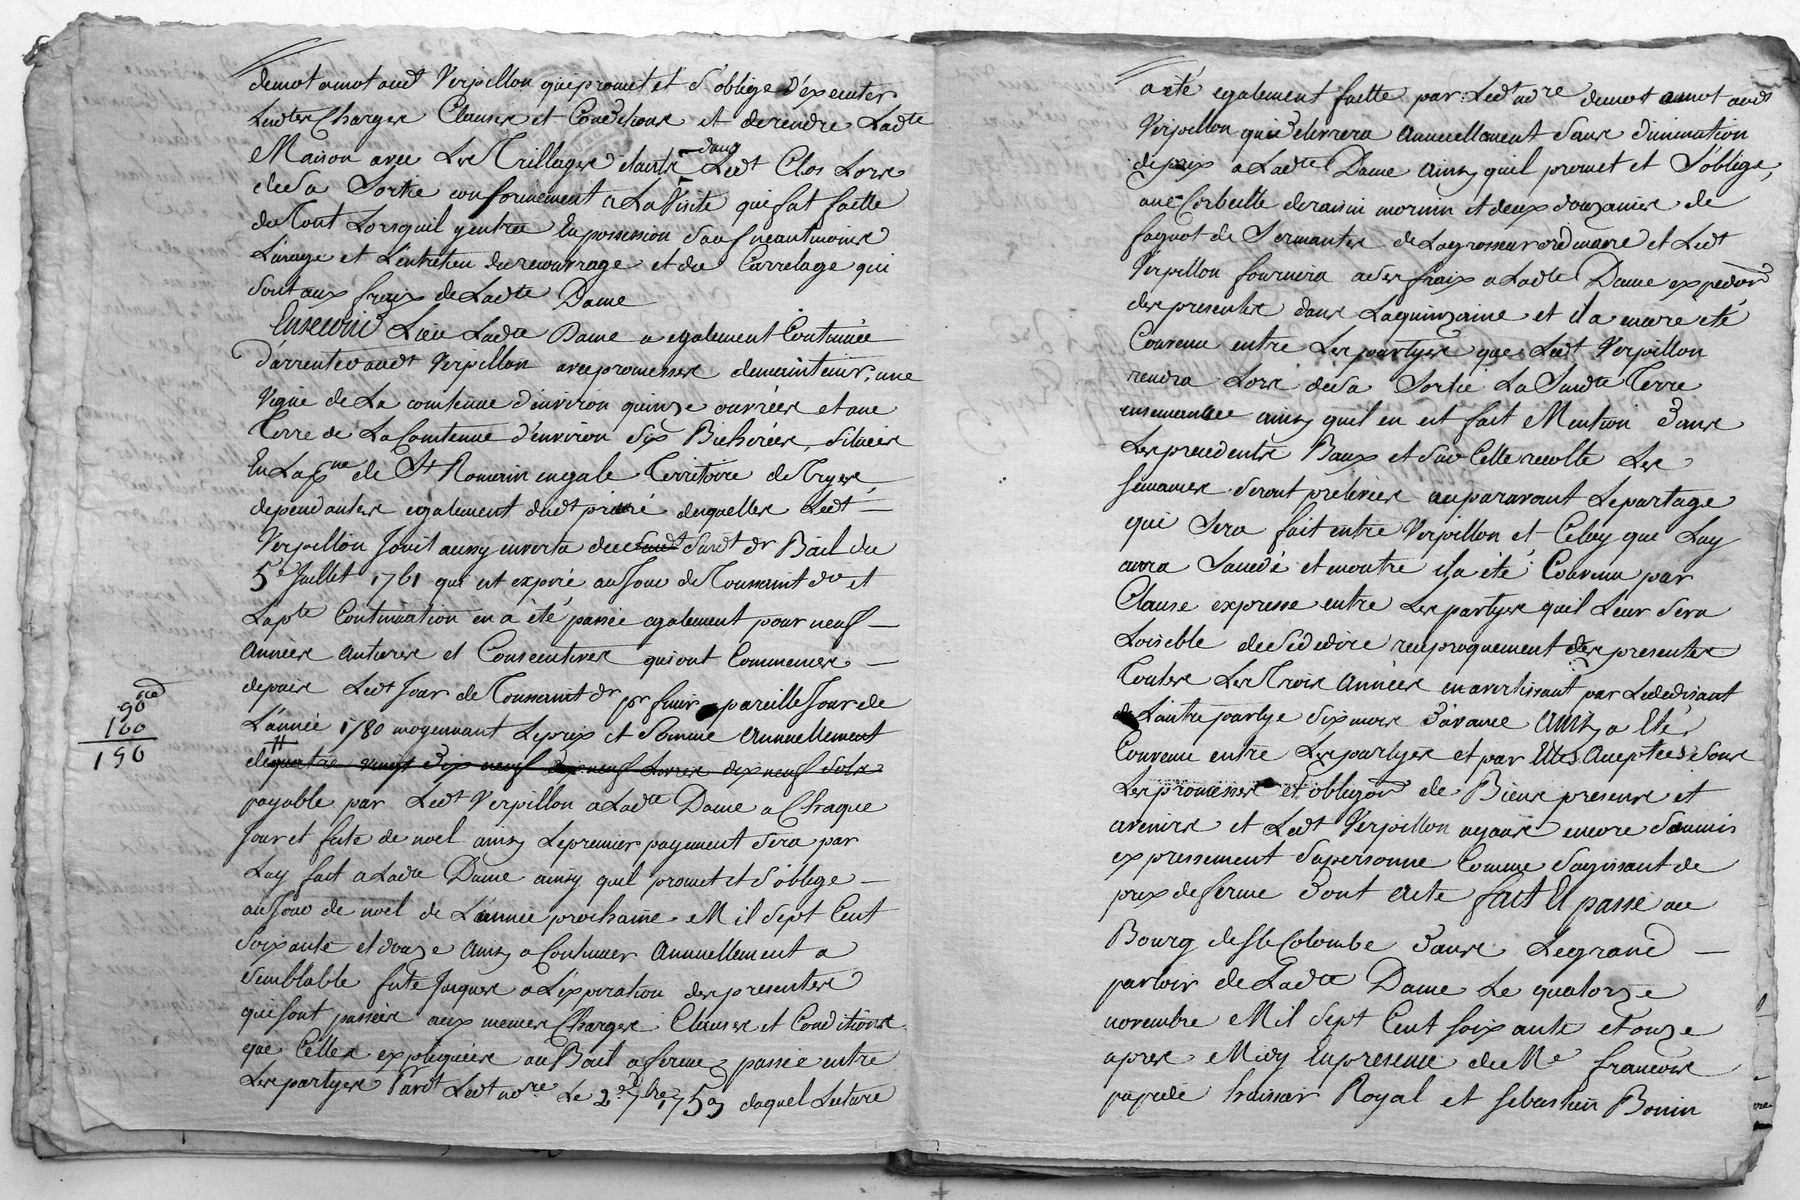 demot amot audt Verpillon qui promet et s'oblige d'éxecuter
Lesdtes Charges Clauses et Conditions et derendre Ladte
Maison avec Les Trillages dans Ledt Clos Lors
desa Sortie conformement a La Visite qui fut faitte
du Tout Lorsquil y entra En possession Sauf neantmoins
L'usage et L'entretien du recouvrage et du Carrelage qui
Sont aux fraix de Ladte Dame
Ensecond Lieu Ladte Dame a egalement Continuée
d'arrenter audt Verpillon avec promesses demaintenir, une
Vigne de La contenue d'environ quinze ouvrées et une
Terre de La Contenue d'environ Six Bicherées, situées
En La psse de St Romain en gale Territoire de Tryes
dependantes egalement dudt prieuré desquelles Ledt
Verpillon Jouit aussy en vertu de susdt dr Bail du
5e Juillet 1761 qui est expiré au Jour de Toussaint dr et
La pte Continuation en a été passée egalement pour neuf
Années Entieres et Consecutives qui ont Commencés
depuis Ledt Jour de Toussaint dr pr finir a pareille Jour de
L'année 1780 moyennant Le prix et Somme Annuellement
de quatre vingt dix neuf Livres dix neuf Sols
payable par Ledt Verpillon a Ladte Dame a Chaque
Jour et fete de noel ainsy Le premier payement Sera par
Luy fait a Ladte Dame ainsy quil promet et S'oblige
au Jour de noel de L'année prochaine Mil Sept Cent
Soixante et douze Ainsy a Continuer Annuellement a
Semblable fete Jusques a L'expiration des presentes
qui sont passées aux memes Charges Clauses et Conditions
que Celles expliquées au Bail a ferme passé entre
Les partyes Pardt Ledt nore Le 2e 7bre 1759 duquel Lecture
90
100
190
a eté egalement faitte par Ledt nore demot amot audt
Verpillon qui delivrera Annuellement Sans diminution
deprix a Ladte Dame Ainsy quil promet et S'oblige,
une Corbeille de raisin mornin et deux douzaines de
fagot de Sermantes de La grosseur ordinaire et Ledt
Verpillon fournira a ses fraix a Ladte Dame expedon
des presentes dans La quinzaine et il a encore eté
Convenu entre Les partyes que Ledt Verpillon
rendra Lors desa Sortie La Susdte Terre
ensemancée ainsy quil en est fait Mention Dans
Les precedents Baux et Sur Cette recolte Les
semances Seront prelevées auparavant Le partage
qui Sera fait entre Verpillon et Celuy que Luy
aura Succedé et montre il a été Convenu par
Clause expresse entre Les partyes quil Leur Sera
Loisible de Se dedire reciproquement des presentes
Toutes Les Trois Années en avertissant par Le dedisant
L'autre partye Six mois D'avance Ainsy a Eté
Convenu entre Les partyes et par Elles Acceptées Sous
Les promesses et obligaon de Biens presens et
avenirs et Ledt Verpillon ayant encore Soumis
expressement Sa personne Comme S'agissant de
prix de ferme Dont Acte fait Et passé au
Bourg de Ste Colombe Dans Le grand
parloir de Ladte Dame Le quatorze
novembre Mil Sept Cent soixante et onze
apres Midy En presence de Me francois
huissier Royal et sebastien Bonin